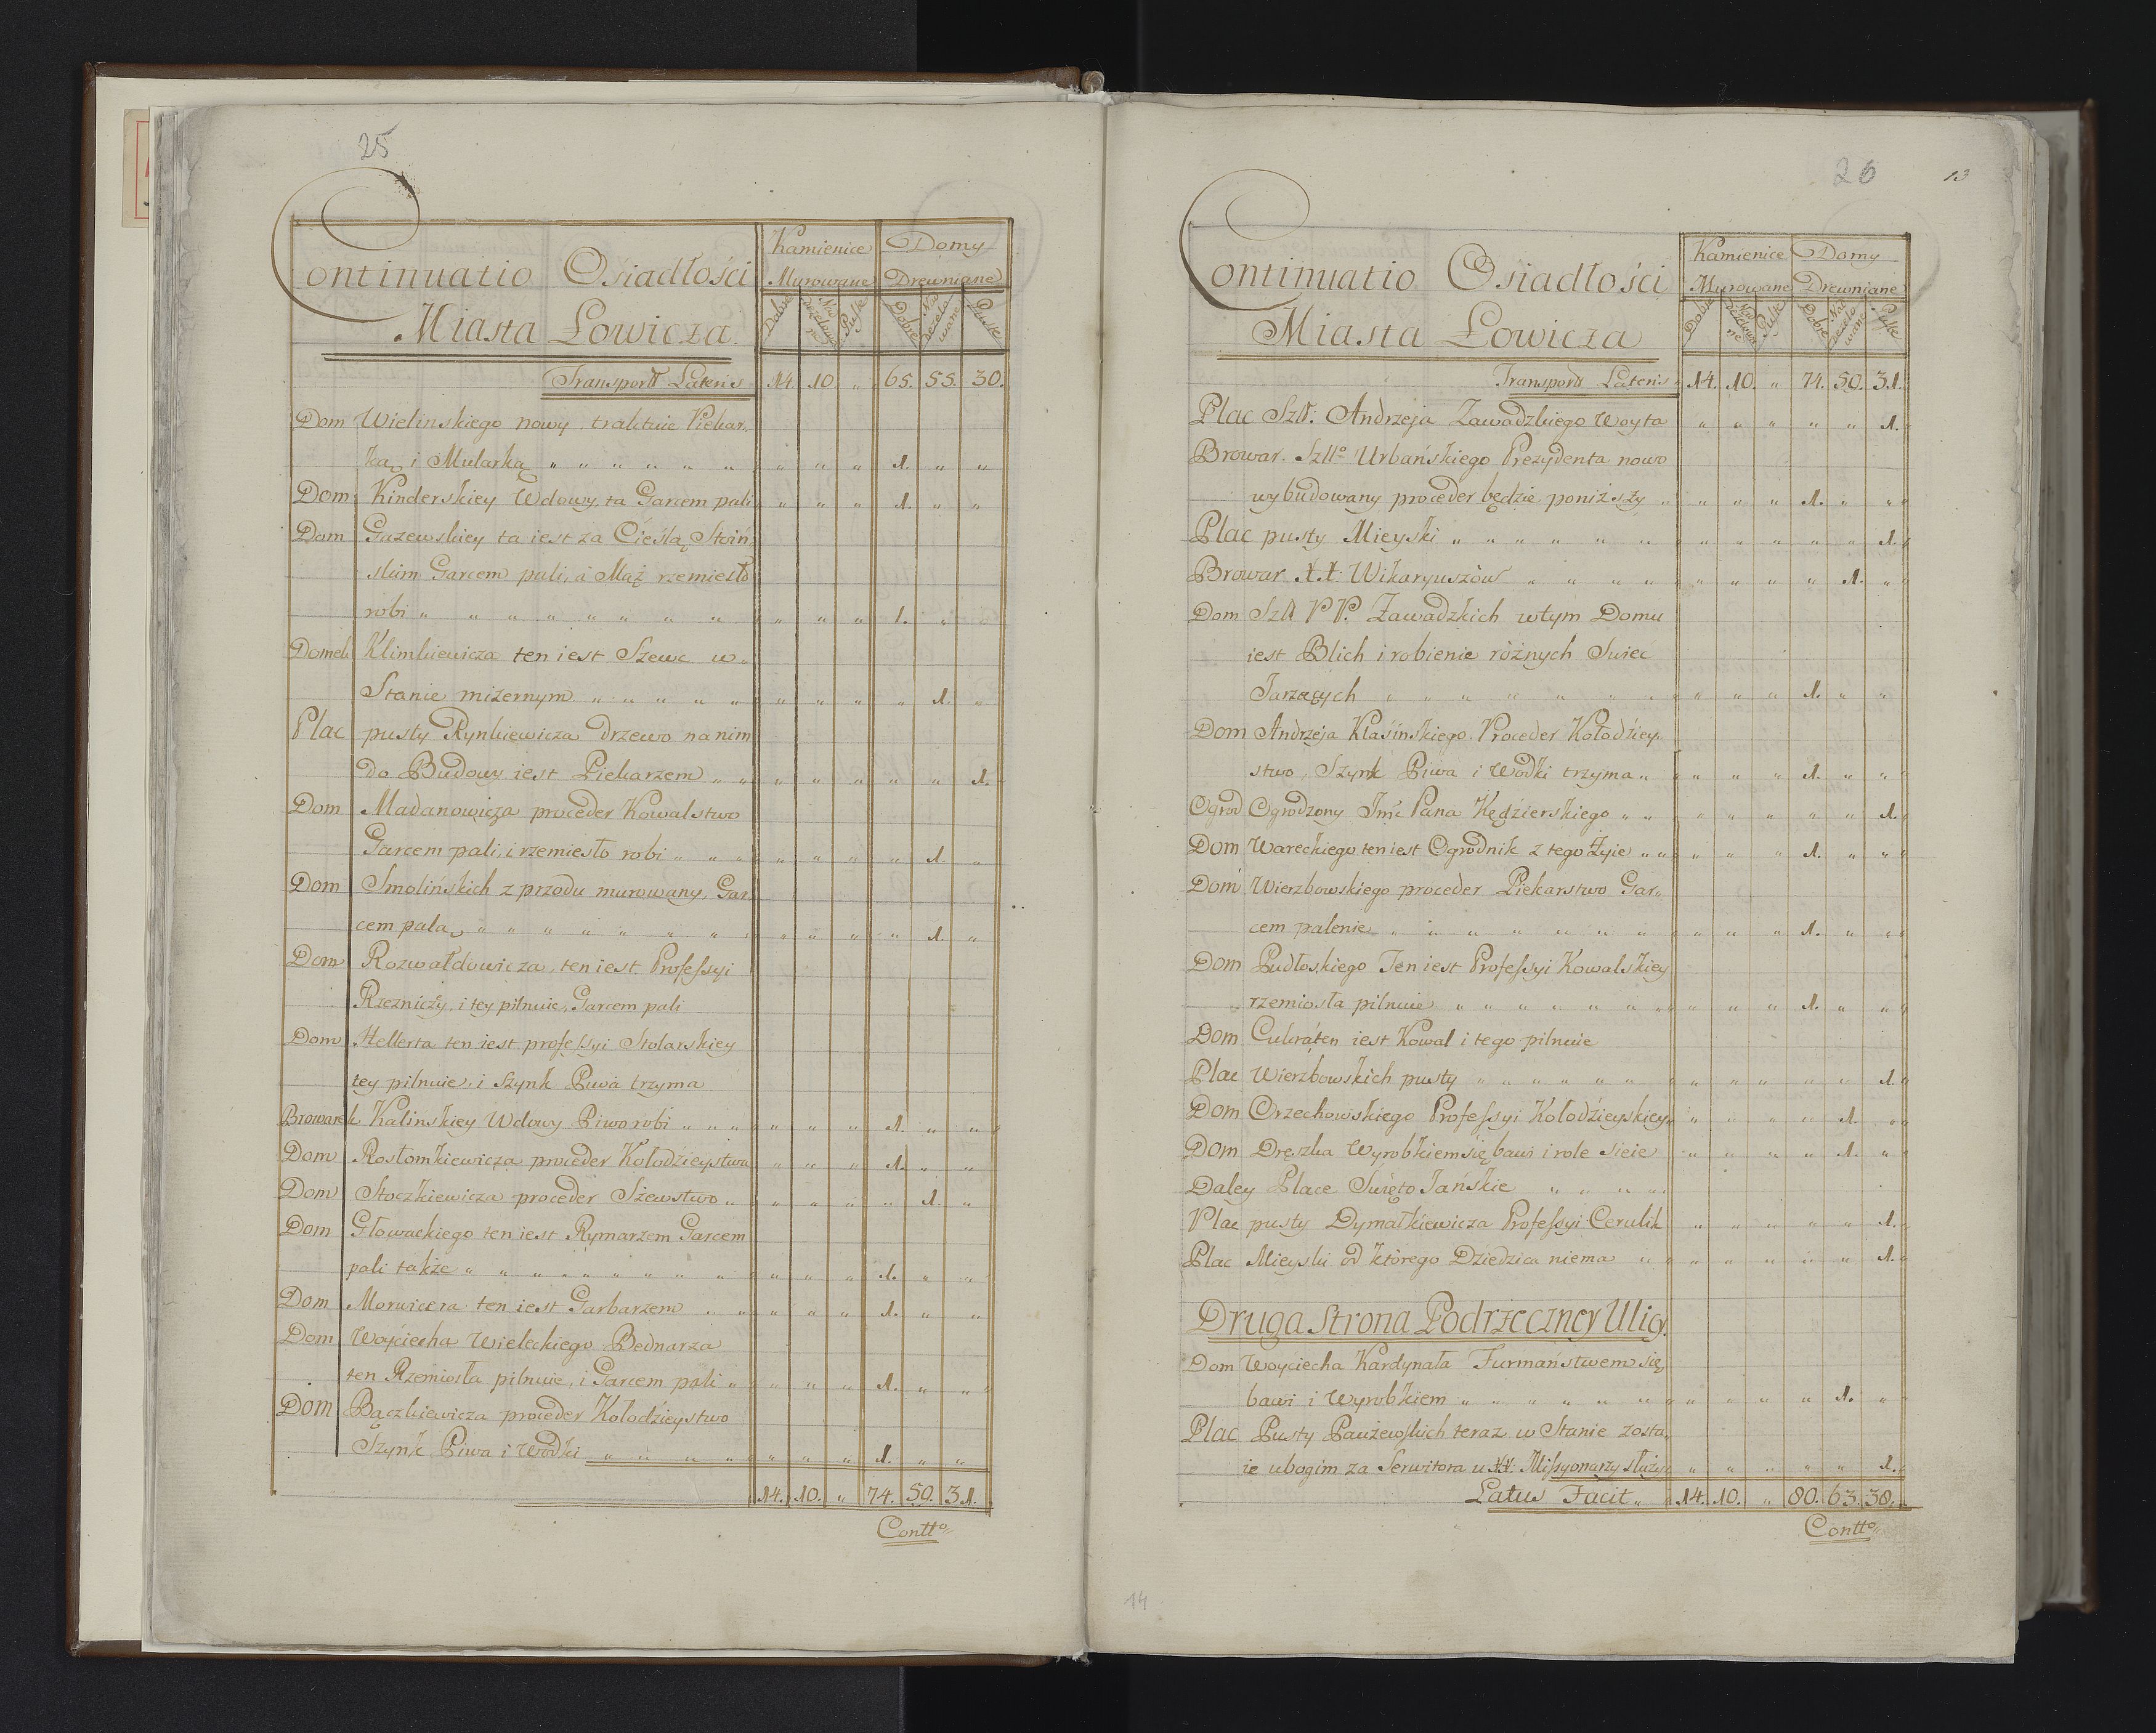 25
Continuatio Osiadłości
Miasta Łowicza.
Kamienice Murowane
Domy Drewniane
Dobre
Puste
Dobre
Puste
Transport Lateris 14. 10. " 65. 55. 30.
Dom Wielinskiego nowy traktuie Piekar„
ką i Mularką " " " " " " " " " 1. " "
Dom Kinderskiey Wdowy, ta Garcem pali " " " 1. " "
Dom Gazewskiey ta iest za Cieślą Stoiń„
skim Garcem pali, a Mąż rzemiesło
robi " " " " " " " " " " " " 1. " "
Domek Klimkiewicza ten iest Szewc w„
Stanie mizernym " " " " " " " " " 1. "
Plac pusty Rynkiewicza drzewo na nim
do Budowy iest Piekarzem " " " " " " " 1.
Dom Madanowicza proceder Kowalstwo
Garcem pali, i rzemiesło robi " " " " " " " 1. "
Dom Smolińskich z przodu murowany, Gar„
cem palą " " " " " " " " " " " " 1. "
Dom Rozwałdowicza, ten iest Professyi
Rzezniczy, i tey pilnuie, Garcem pali
Dom Hellerta ten iest professyi Stolarskiey
tey pilnuie, i szynk Piwa trzyma
Browarek Kalinskiey Wdowy Piwo robi " " " " " " 1. " "
Dom Rostomkiewicza proceder Kołodzieystwa " " " 1. " "
Dom Stoczkiewicza proceder Szewstwo " " " " " " 1. "
Dom Głowackiego ten iest Rymarzem Garcem
pali także " " " " " " " " " " " 1. " "
Dom Morwicza ten iest Garbarzem " " " " " 1. " "
Dom Woyciecha Wieleckiego Bednarza
ten Rzemiosła pilnuie, i Garcem pali " " " " 1. " "
Dom Bączkiewicza proceder Kołodzieystwo
Szynk Piwa i Wodki " " " " " " " " 1. " "
14. 10. " 74. 50. 31.
Contto
26 13
Continuatio Osiadłości
Miasta Łowicza
Kamienice Murowane
Domy Drewniane
Dobre
Puste
Dobre
Puste
Transport Lateris 14. 10. " 74. 50. 31.
Plac Szl: Andrzeja Zawadzkiego Woyta " " " " " 1.
Browar Szllo Urbańskiego Prezydenta nowo
wybudowany proceder będzie poniższy " " " " 1. " "
Plac pusty Mieyski " " " " " " " " " " " " 1.
Browar X.X. Wikaryuszów " " " " " " " " " 1. "
Dom Szll PP. Zawadzkich wtym Domu
iest Blich i robienie różnych Swiec
Jarzących " " " " " " " " " " 1. " "
Dom Andrzeja Klasińskiego Proceder Kołodziey„
stwo, Szynk Piwa i Wodki trzyma " " " " " 1. " "
Ogrod Ogrodzony Jmć Pana Kędzierskiego " " " " " " " 1.
Dom Wareckiego ten iest Ogrodnik z tego żyie " " " " " 1. " "
Dom Wierzbowskiego proceder Piekarstwo Gar„
cem palenie " " " " " " " " " " 1. " "
Dom Pudłoskiego Ten iest Professyi Kowalskiey
rzemiosła pilnuie " " " " " " " " " " 1. " "
Dom Cukra ten iest Kowal i tego pilnuie
Plac Wierzbowskich pusty " " " " " " " " " " " 1.
Dom Orzechowskiego Professyi Kołodzieyskiey " " " " 1. "
Dom Dręszka Wyrobkiem się bawi i role sieie " " " " 1. "
Daley Place Swięto Jańskie " " " "
Plac pusty Dymałkiewicza Professyi Cerulik " " " " " 1.
Plac Mieyski od którego Dziedzica niema " " " " " " 1.
Druga Strona Podrzeczney Ulicy.
Dom Woyciecha Kardynała Furmaństwem się
bawi i Wyrobkiem " " " " " " " " " " 1. "
Plac Pusty Pauzewskich teraz w Stanie zosta„
ie ubogim za Serwitora u XX. Missyonarzy służy " " " " " 1.
Latus Facit " 14. 10. " 80. 63. 38.
Contto
14